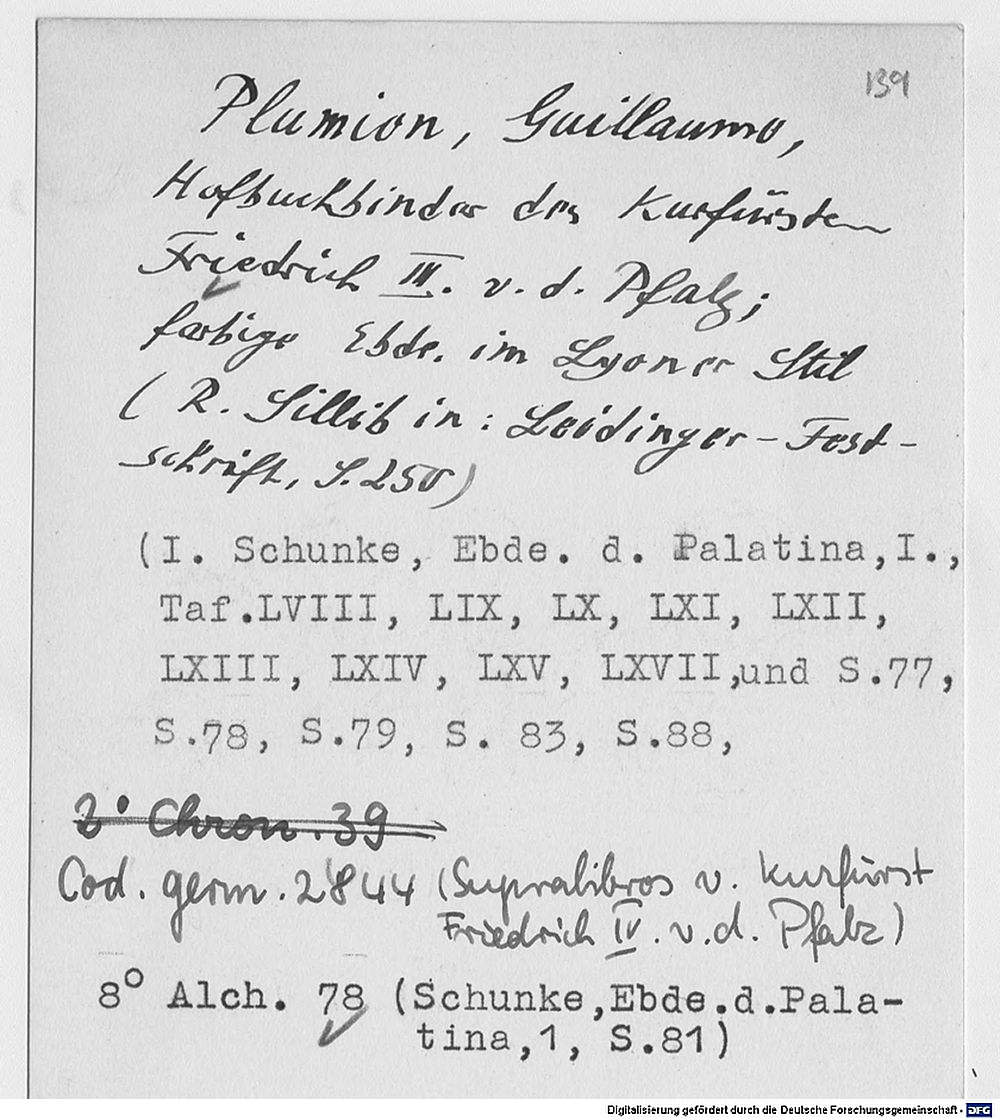 139
Plumion, Guillaume,
Hofbuchbinder des Kurfürsten
Friedrich III. v. d. Pfalz;
farbige Ebde. im Lyoner Stil
(R. Sillib in: Leidinger-Fest-
schrift, S. 250)
(I. Schunke, Ebde. d. Palatina,I.,
Taf.LVIII, LIX, LX, LXI, LXII,
LXIII, LXIV, LXV, LXVII,und S.77,
S.78, S.79, S. 83, S.88,
2° Chron. 39
Cod. germ. 2844 (Supralibros v. Kurfürst
Friedrich IV. v.d. Pfalz)
8° Alch. 78 (Schunke,Ebde.d.Pala-
tina,1, S.81)
Digitalisierung gefördert durch die Deutsche Forschungsgemeinschaft - DFG